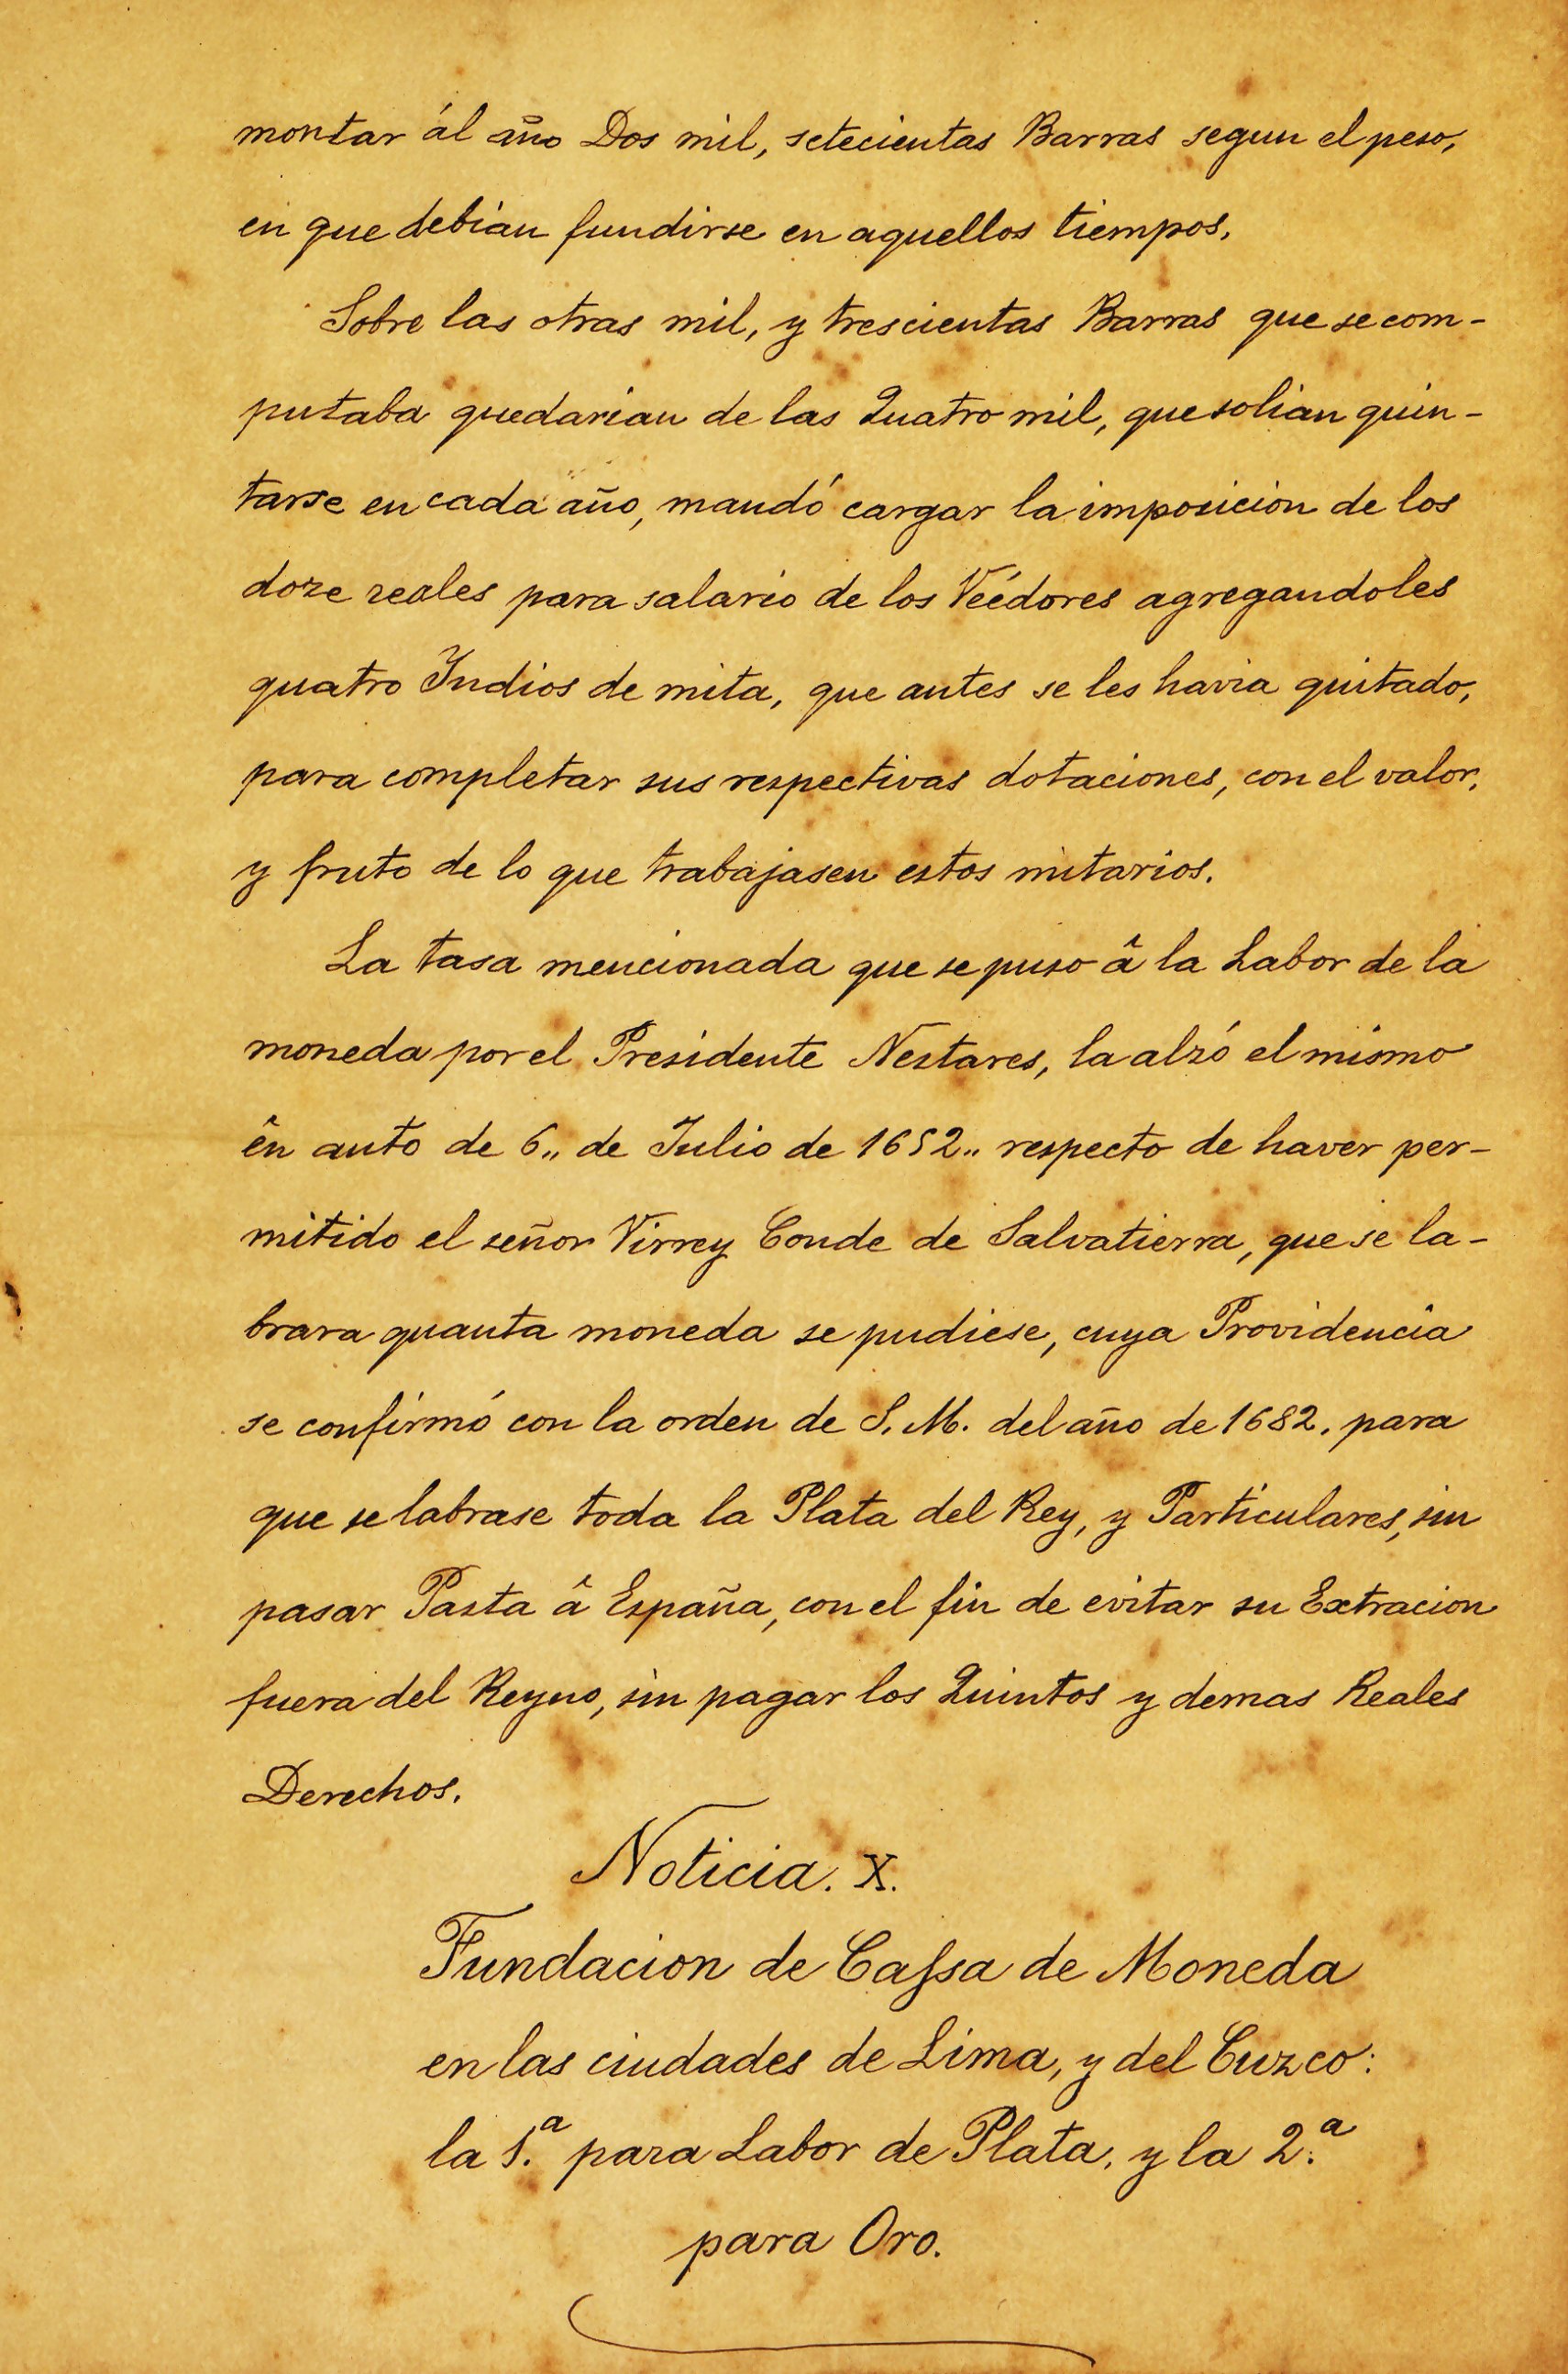 montar ál año Dos mil, setecientas Barras segun el peso,
en que debian fundirse en aquellos tiempos.
Sobre las otras mil, y trescientas Barras que se com-
putaba quedarian de las Quatro mil, que solian quin-
tarse en cada año, mandó cargar la imposicion de los
doze reales para salario de los Veédores agregandoles
quatro Indios de mita, que antes se les havia quitado,
para completar sus respectivas dotaciones, con el valor,
y fruto de lo que trabajasen estos mitarios.
La tasa mencionada que se puso â la Labor de la
moneda por el Presidente Nestares, la alzó el mismo
ên auto de 6,, de Julio de 1652,, respecto de haver per-
mitido el señor Virrey Conde de Salvatierra, que se la-
brara quanta moneda se pudiese, cuya Providencia
se confirmó con la orden de S. M. del año de 1682. para
que se labrase toda la Plata del Rey, y Particulares, sin
pasar Pasta â España, con el fin de evitar su Extracion
fuera del Reyno, sin pagar los Quintos y demas Reales
Derechos.
Noticia. X.
Fundacion de Caſsa de Moneda
en las ciudades de Lima, y del Cuzco:
la 1.ª para Labor de Plata, y la 2.ª
para Oro.